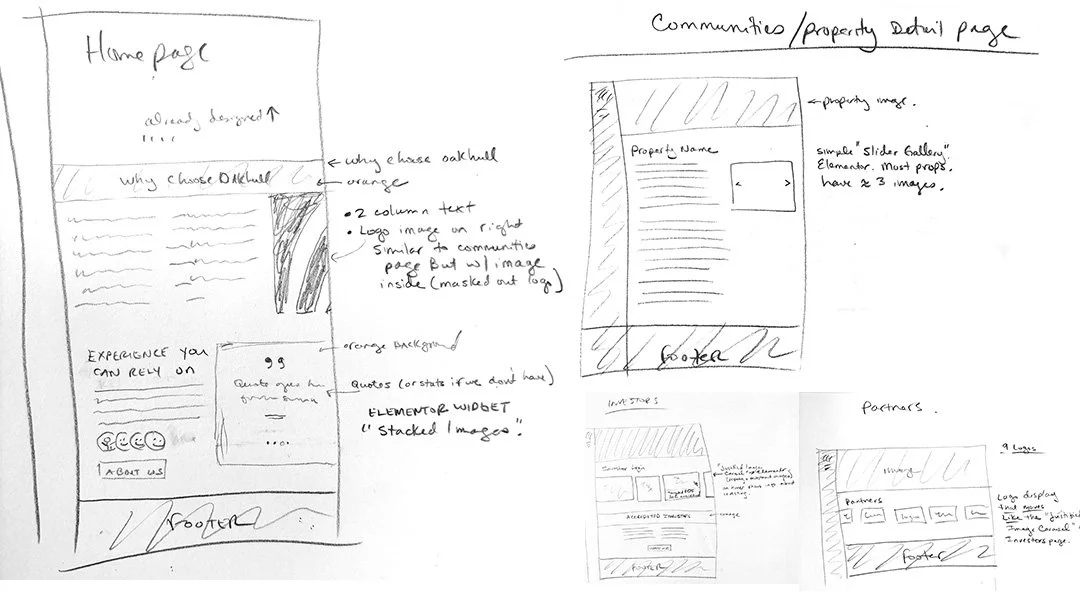 Home page
already designed ↑
Why Choose Oakhull
← why choose oakhull
← orange
• 2 column text
• Logo image on right
Similar to communities
page But w/ image
inside (masked out logo)
EXPERIENCE YOU
CAN RELY ON
ABOUT US
Quote goes
← orange background
← Quotes (or stats if we don't have)
ELEMENTOR WIDGET
"Stacked Images".
FOOTER
Communities/property Detail page
← property image.
Property Name
< >
simple "Slider Gallery"
Elementor. Most props.
have ≈ 3 images.
FOOTER
INVESTORS
Investor Login
ACCREDITED INVESTORS
← orange
FOOTER
Partners.
9 Logos
Partners
Logo display
that moves
Like the "Justified
Image Carousel"
Investors page.
Footer